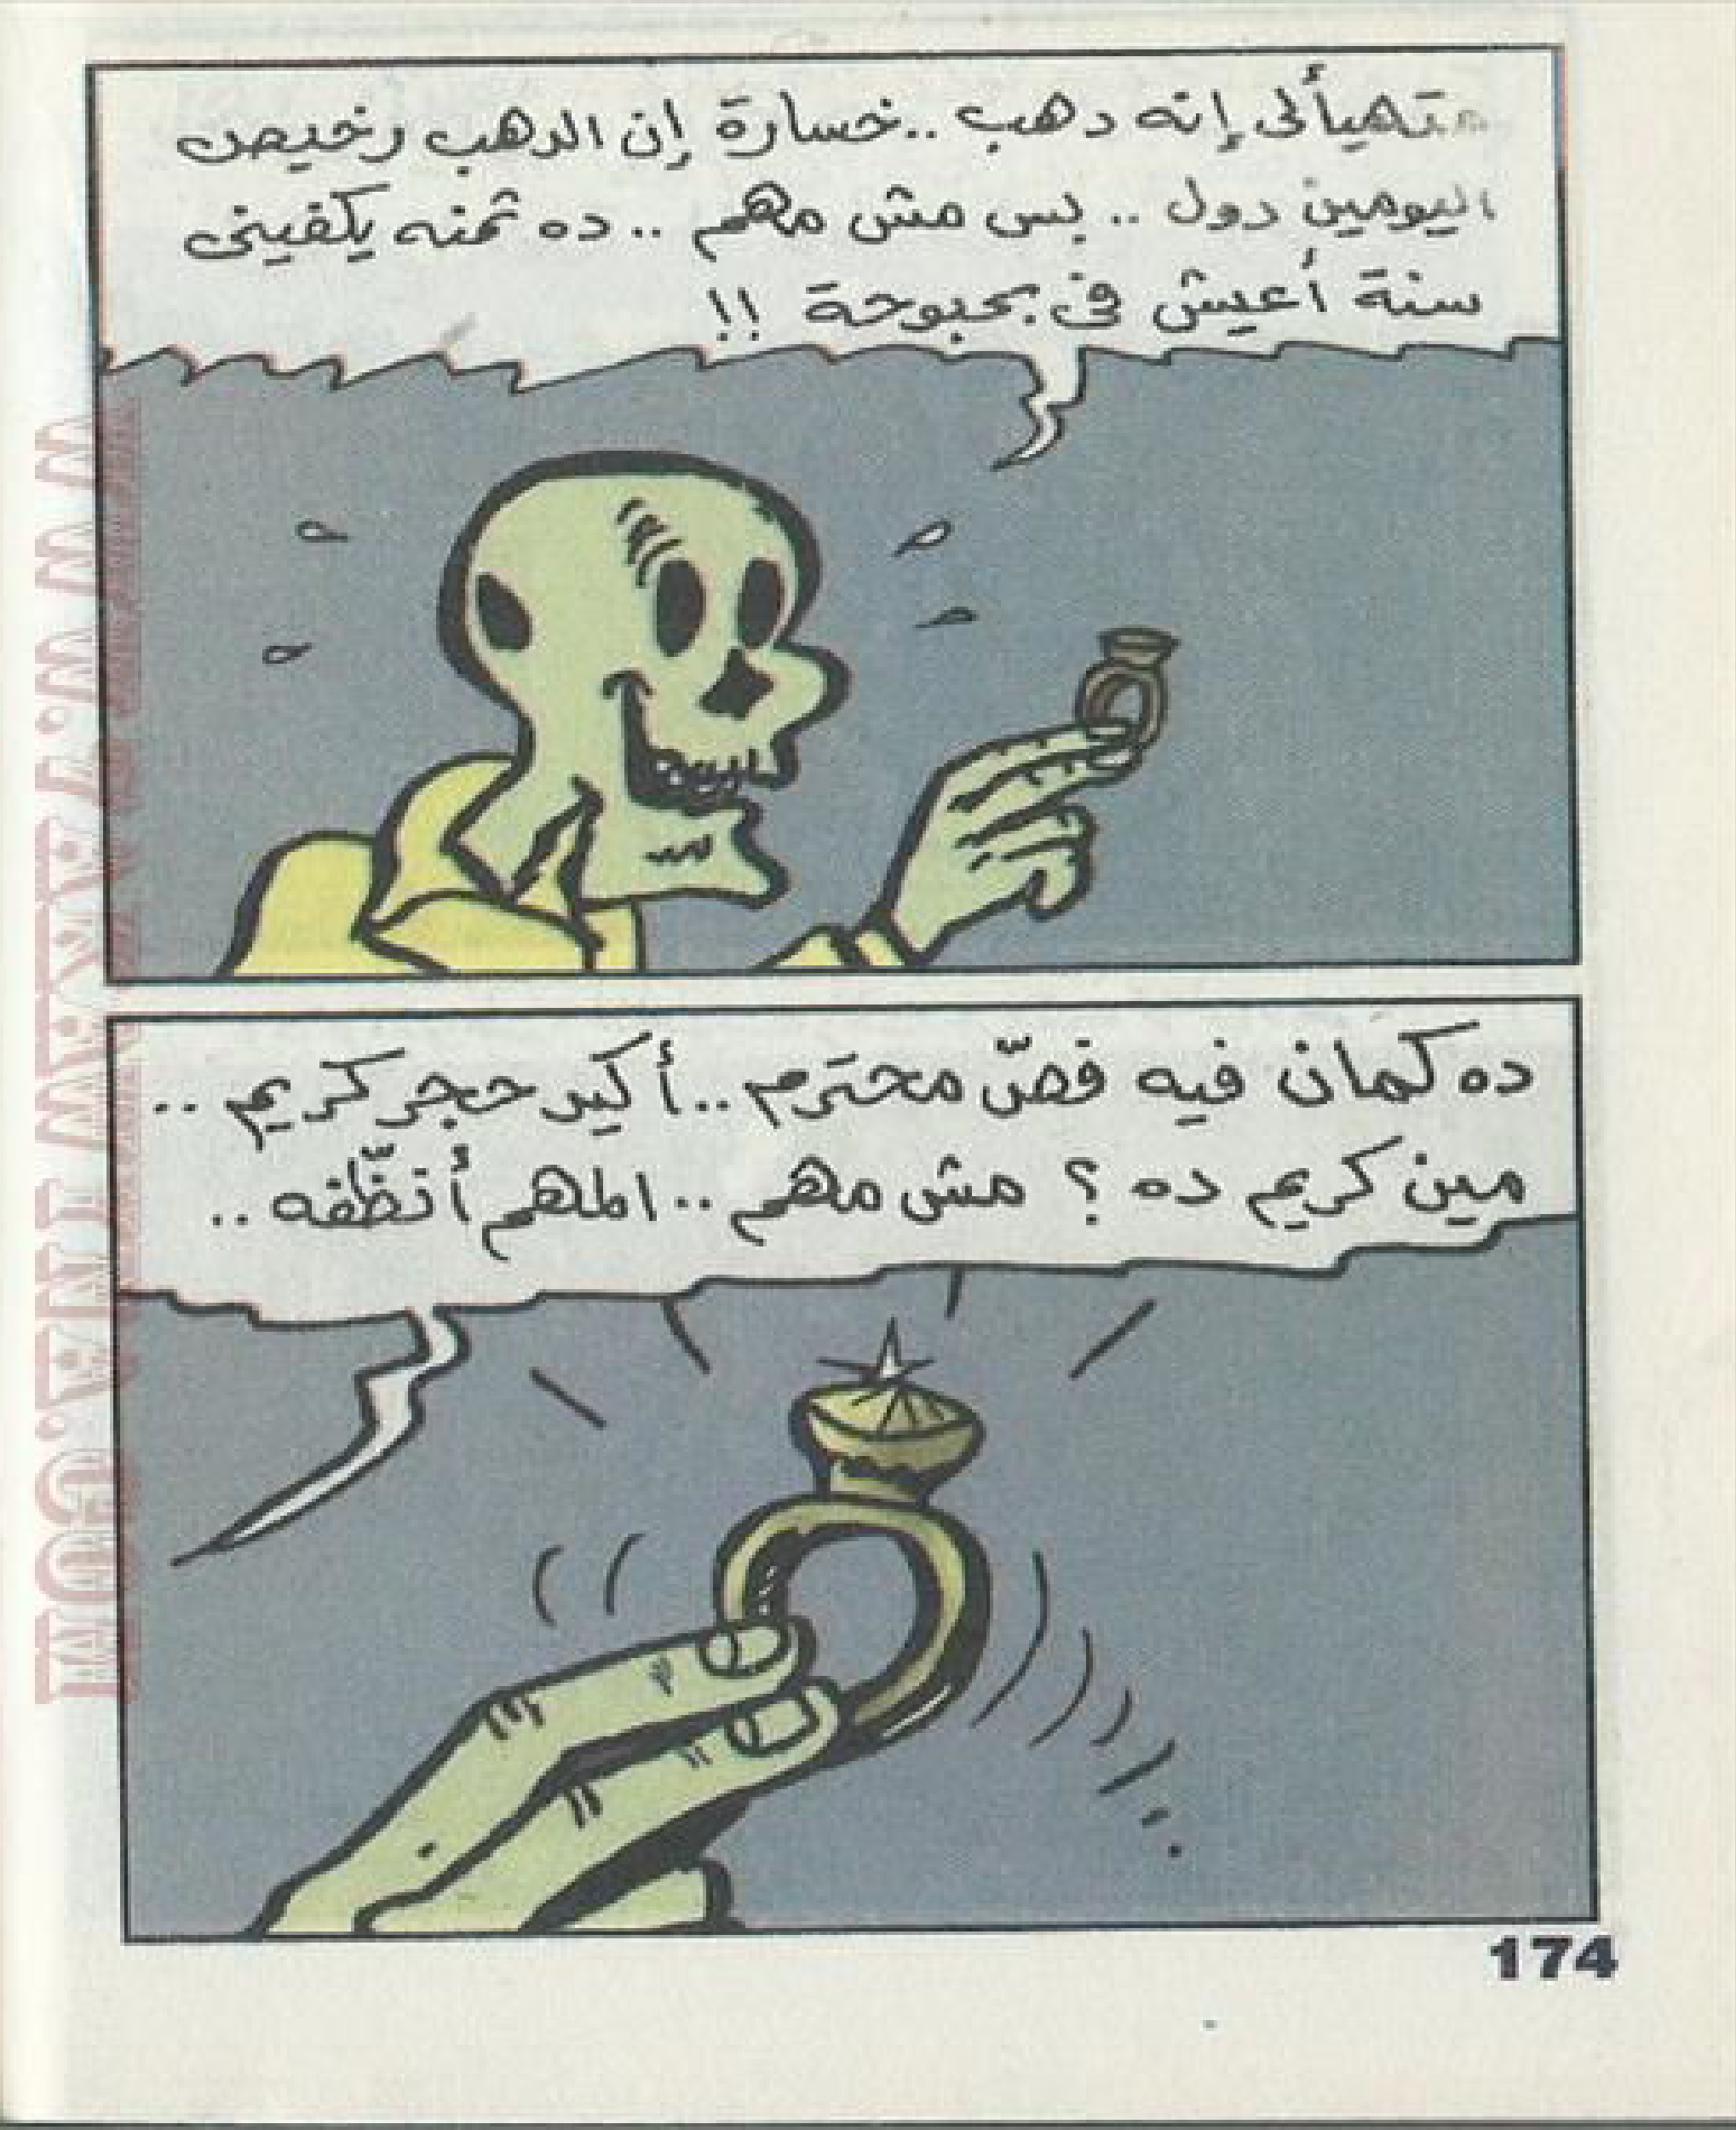 متهيألى إنه دهب ..خسارة إن الدهب رخيص
اليومين دول .. بس مش مهم .. ده ثمنه يكفينى
سنة أعيش فى بحبوحة !!
ده كمان فيه فصّ محترم ..أكيد حجر كريم ..
مين كريم ده ؟ مش مهم ..المهم أنظّفه ..
174